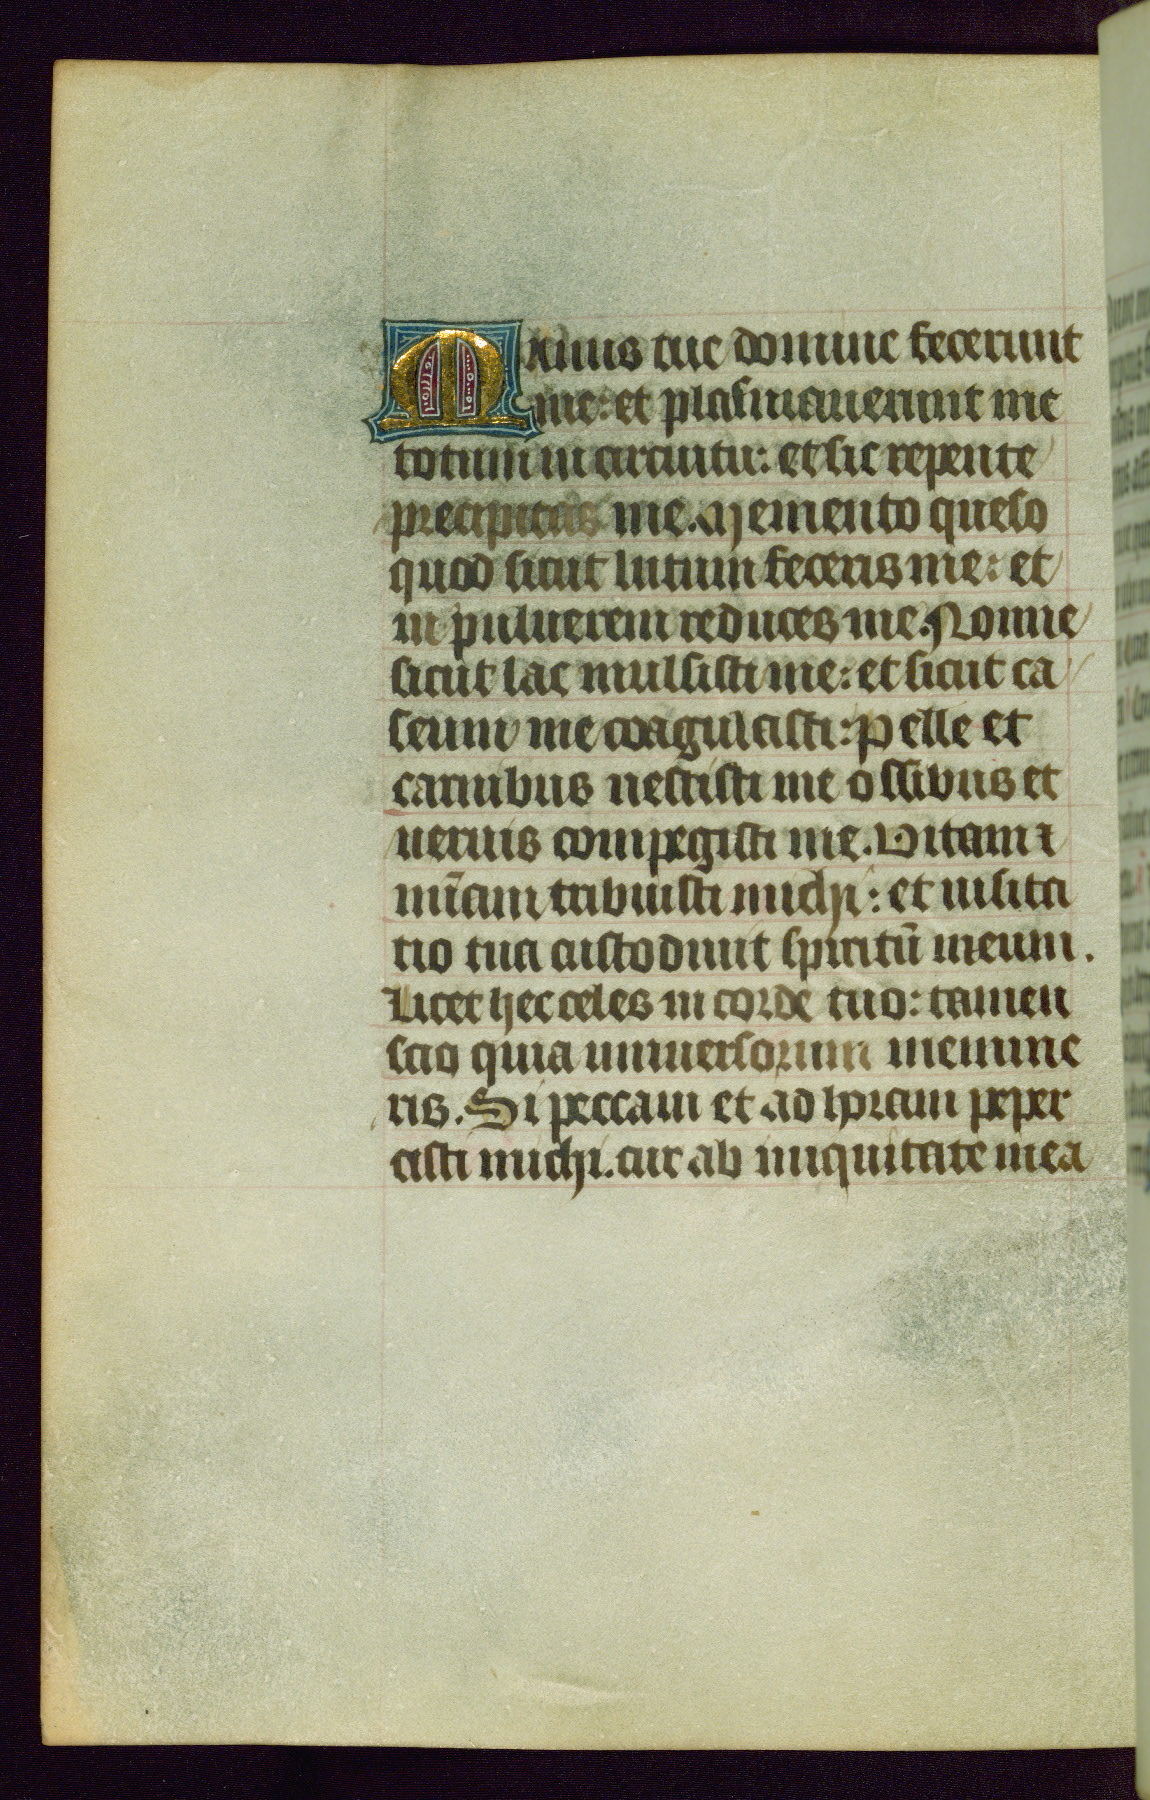 Manus tue domine fecerunt
me: et plasmauerunt me
totum in circuitu: et sic repente
precipitas me. Memento queso
quod sicut lutum feceris me: et
in puluerem reduces me. Nonne
sicut lac mulsisti me: et sicut ca
seum me coagulasti: Pelle et
carnibus uestisti me ossibus et
neruis compegisti me. Vitam ⁊
mĩam tribuisti michi: et uisita
tio tua custodiuit spiritũ meum.
Licet hec celes in corde tuo: tamen
scio quia uniuersorum memine
ris. Si peccaui et ad horam peper
cisti michi. cur ab iniquitate mea